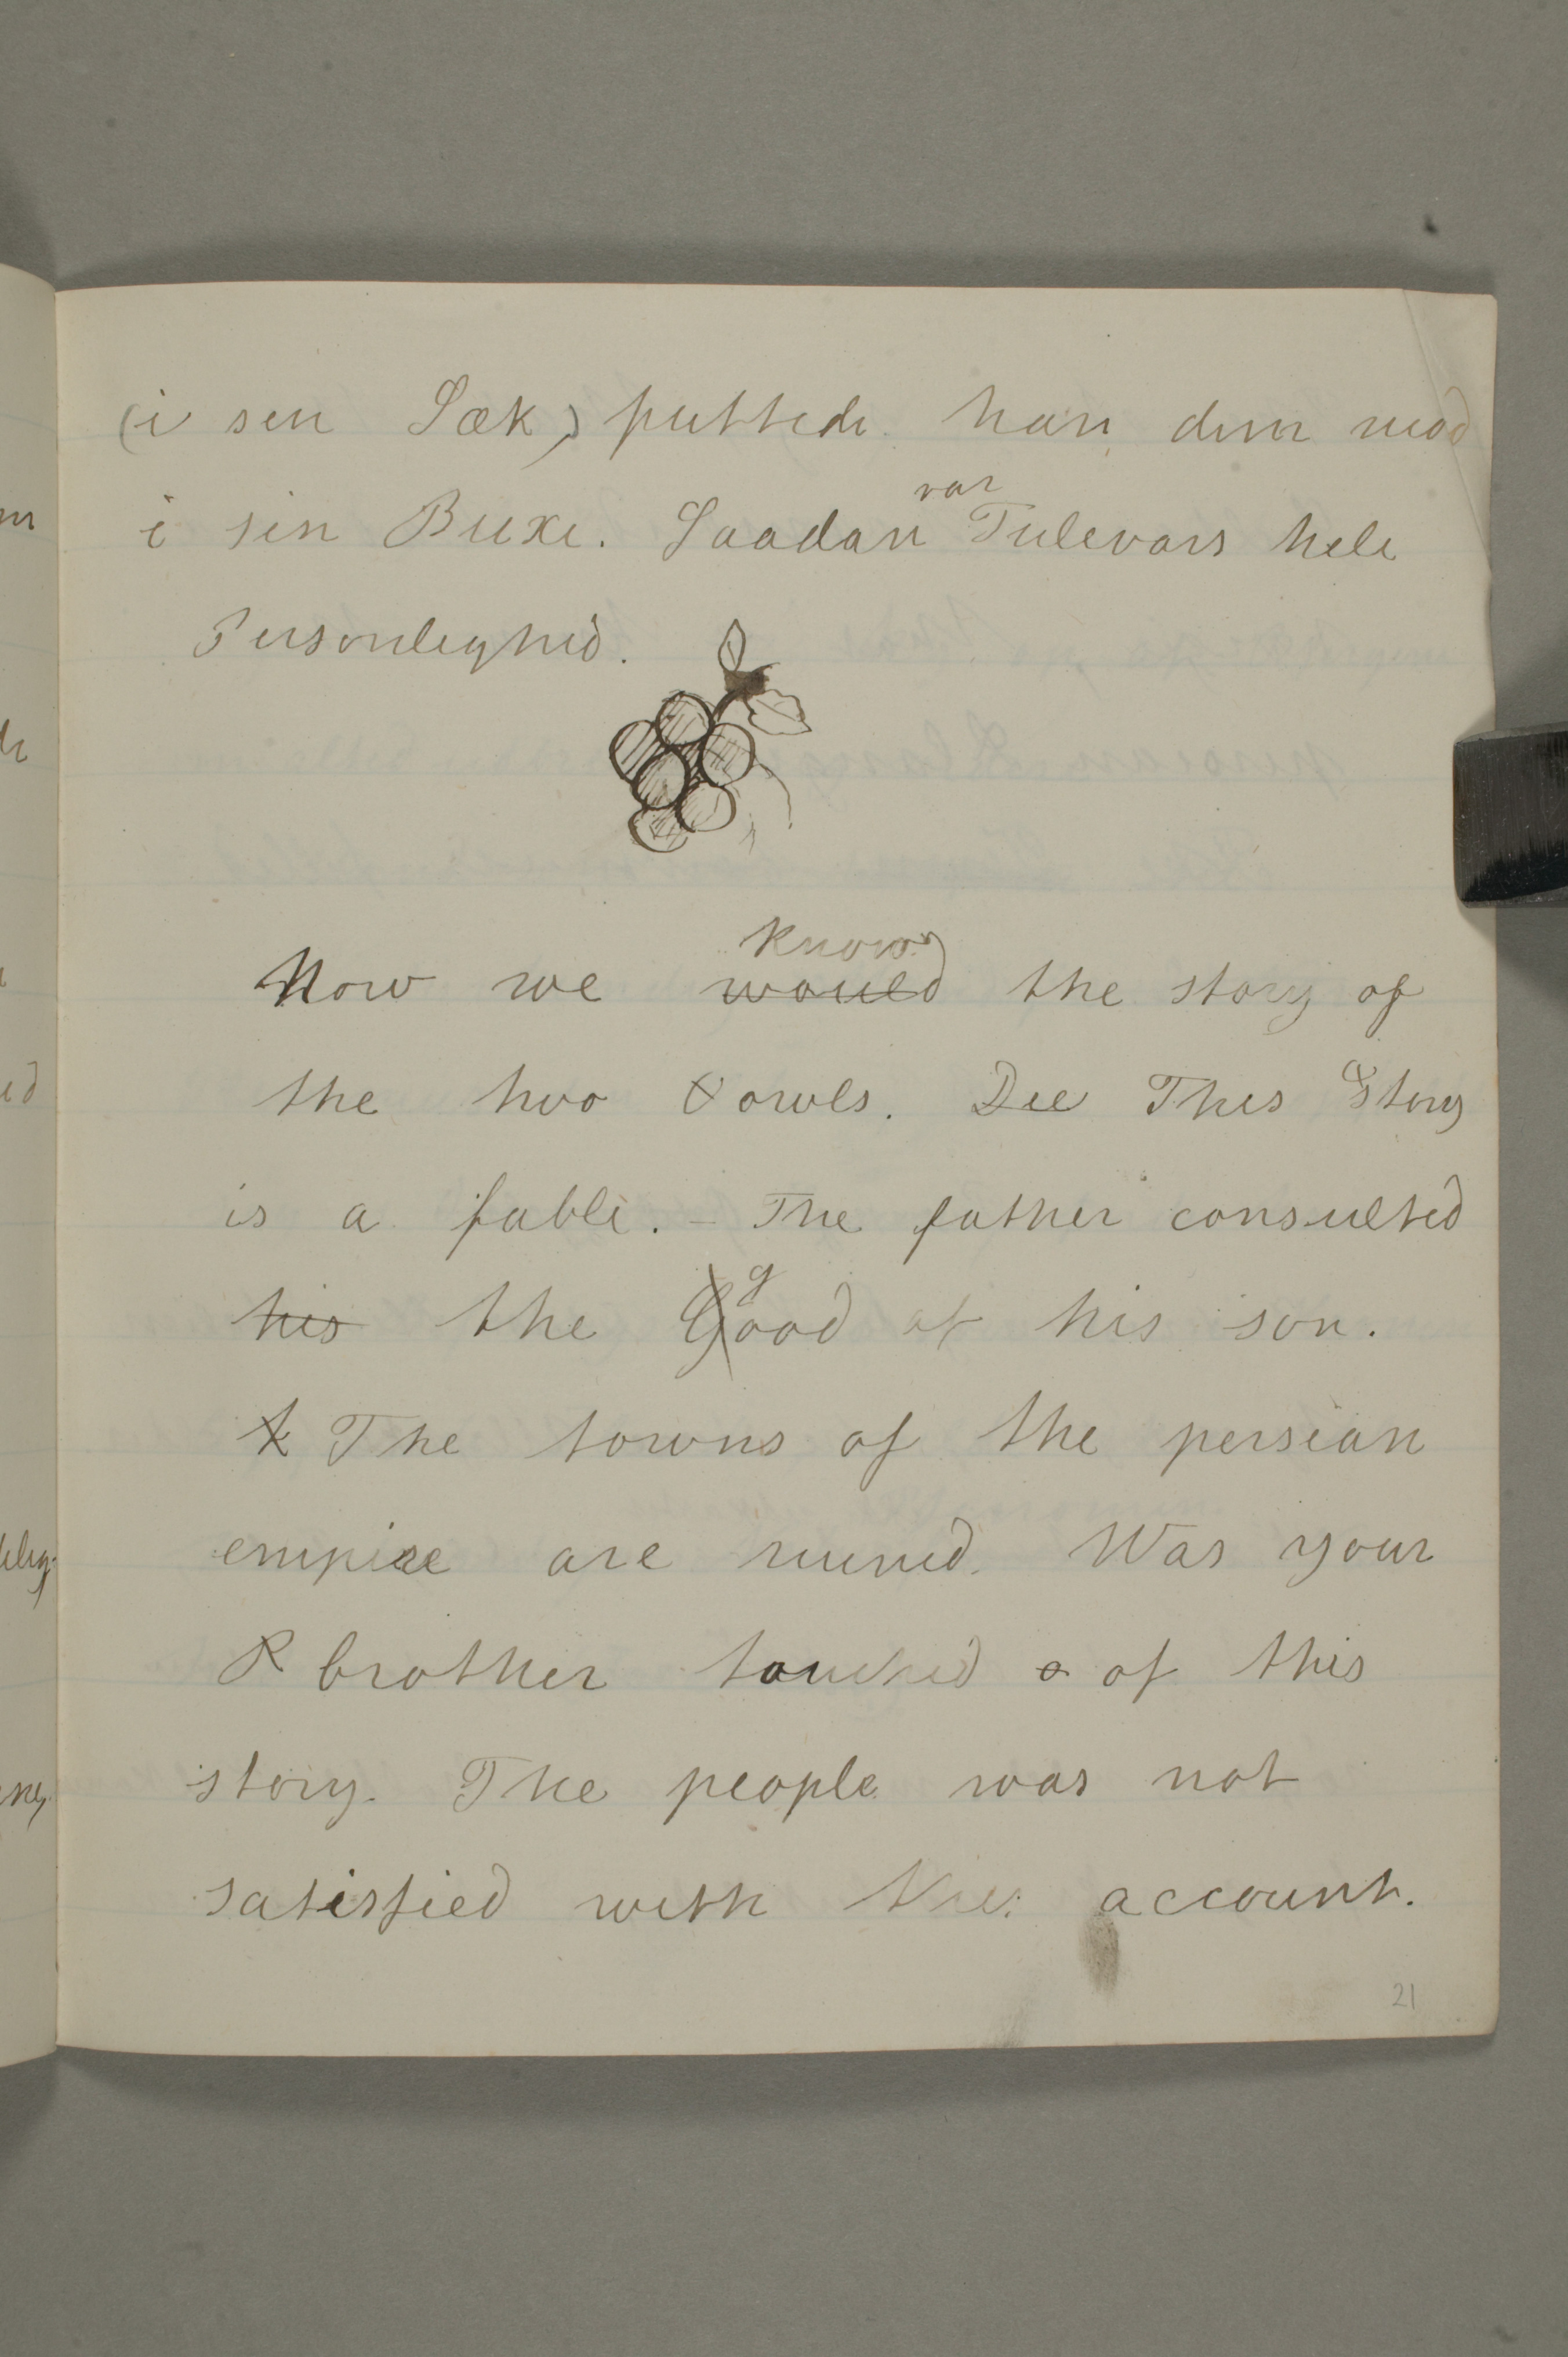 (i sin Sæk) puttede han dem ned
i sin Buxe. Saadan var Tulevars hele
Personlighed.
Now we would know the story of
the two owls. Die This Story
is a fable. - The father consulted
his the good of his son.
t The towns of the persian
empire are ruined. Was your
R brother touched o of this
story. The people was not
satisfied with the account.
21